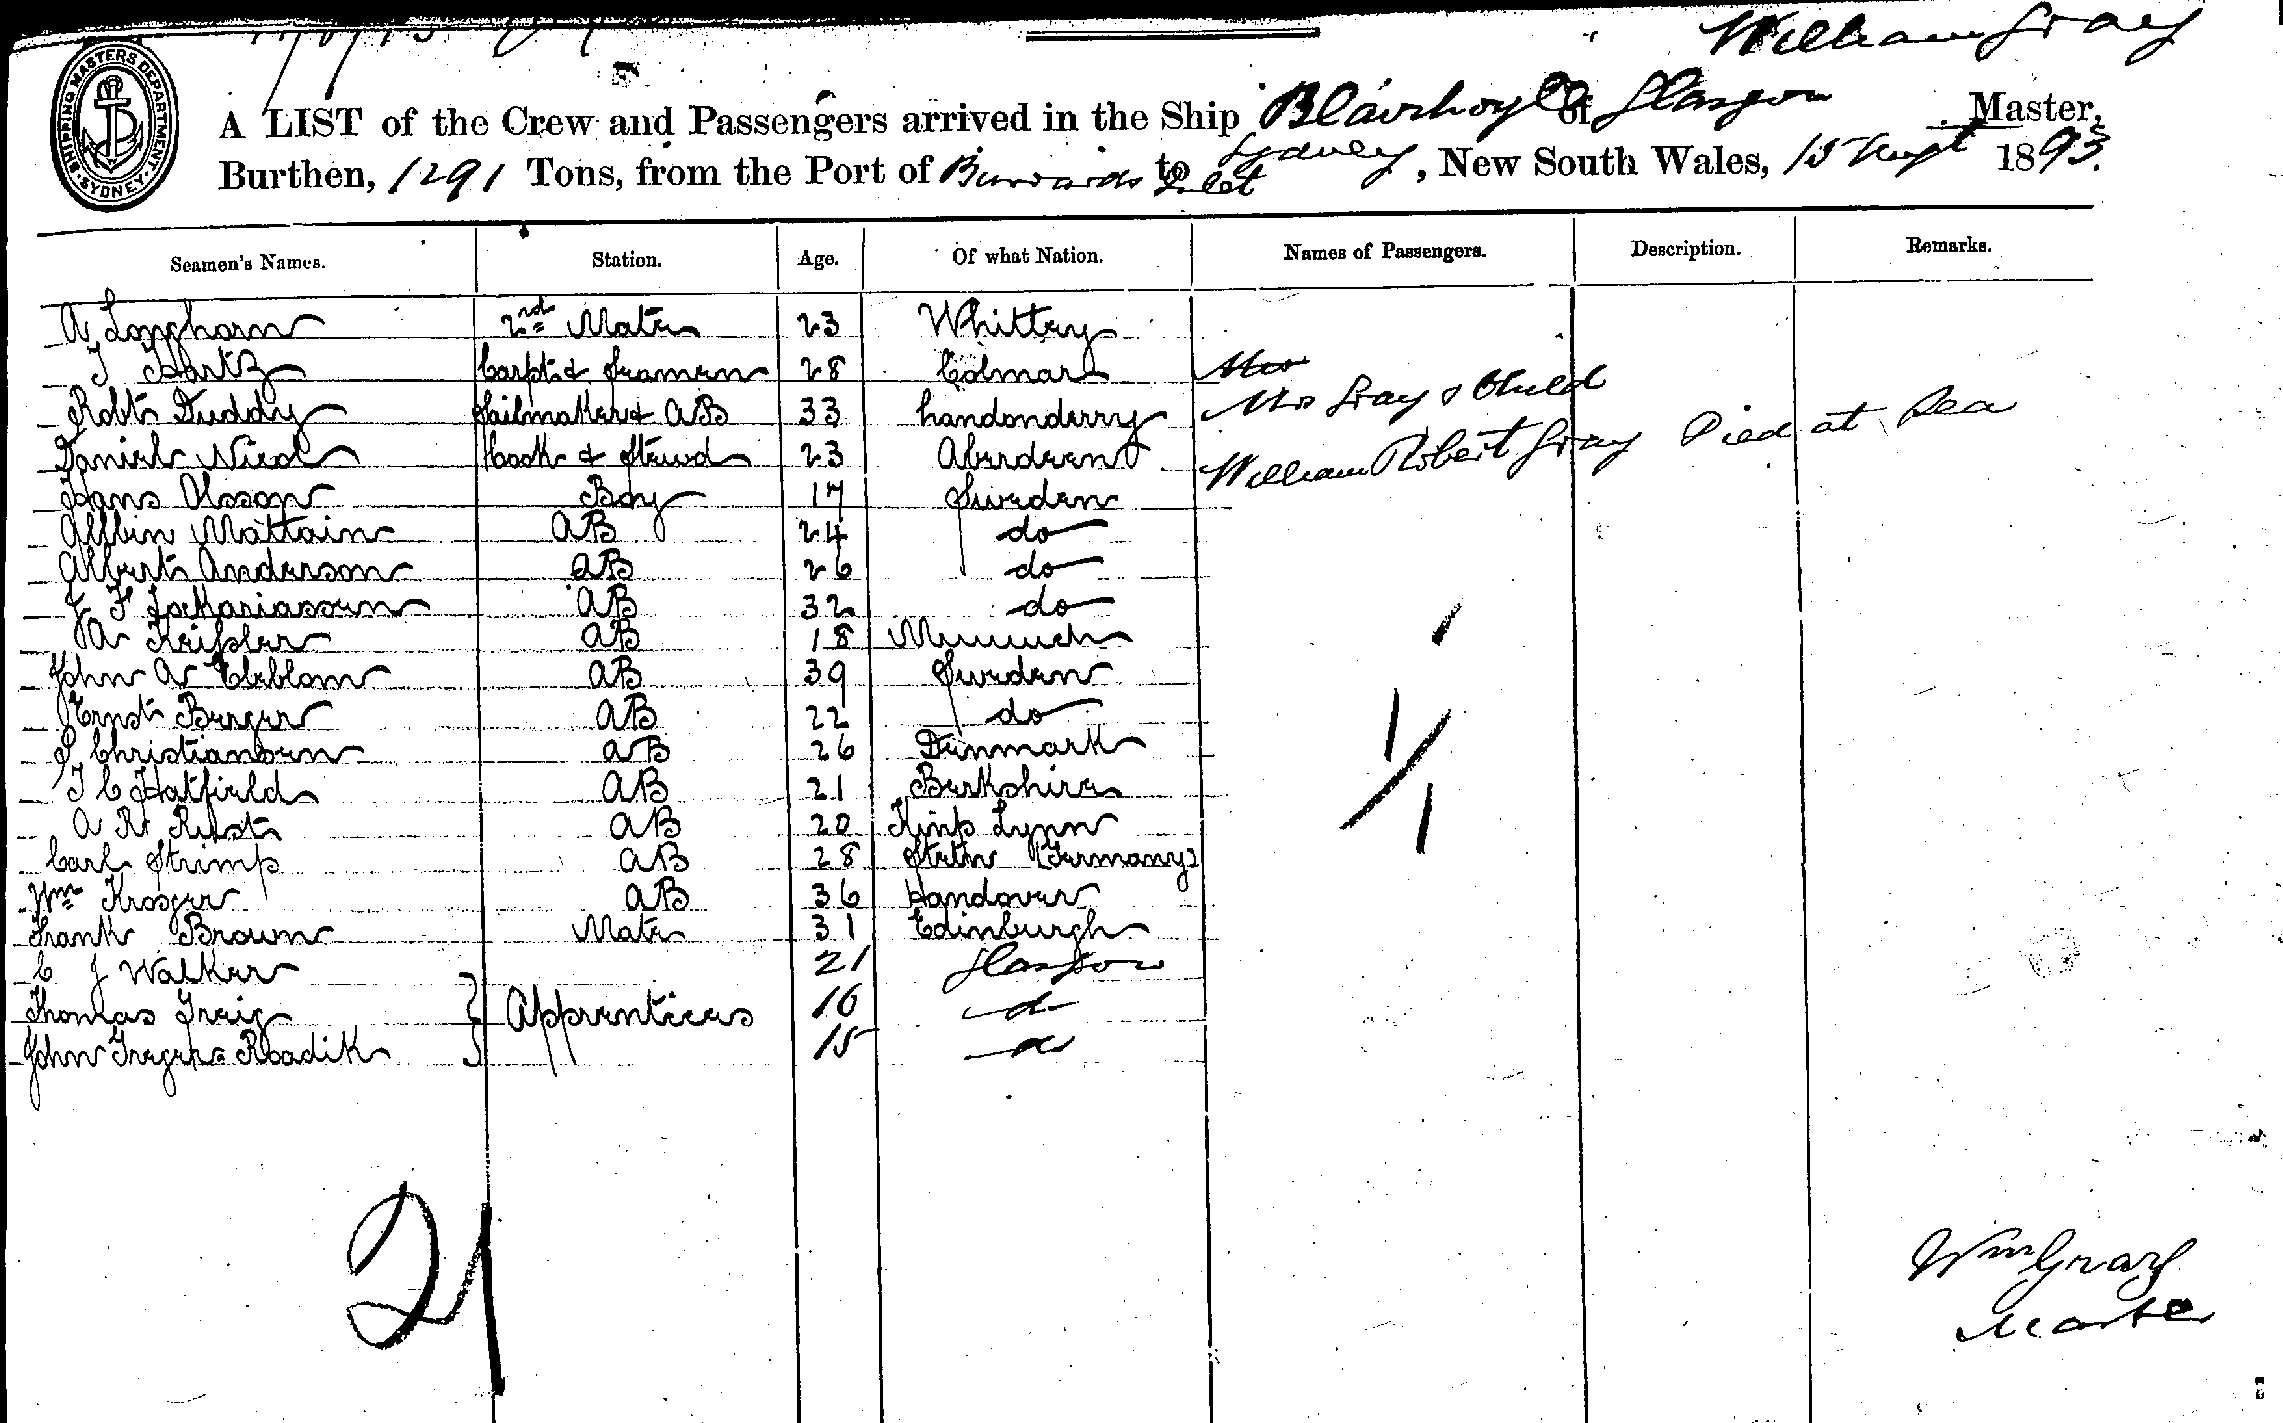 William Gray
SHIPPING MASTERS DEPARTMENT
SYDNEY
A LIST of the Crew and Passengers arrived in the Ship Blairhoyle of Glasgow Master,
Burthen, 1291 Tons, from the Port of Burrards Inlet to Sydney, New South Wales, 15 Augt 1893.
Seamen's Names. Station. Age. Of what Nation. Names of Passengers. Description. Remarks.
A Longhorn 2nd Mate 23 Whittby
J Hartz Carpt & Seamen 28 Colmar Mrs
Robt Duddy Sailmaker & AB 33 Londonderry Mrs Gray & Child
Daniel Nicol Cook & Stewd 23 Aberdeen William Robert Gray Died at Sea
Hans Olsson Boy 17 Sweden
Allbin Mattain AB 24 do
Albert Anderson AB 26 do
J F Zackariassen AB 32 do
A Keissler AB 18 Munuch
John A Ekblom AB 39 Sweden
Ernst Berger AB 22 do
S Christiansen AB 26 Denmark
T C Hatfield AB 21 Berkshire
A R Rust AB 20 Kings Lynn
Carl Strimp AB 28 Stettin (Germany)
Wm Kroeger AB 36 Handover
Frank Brown Mate 31 Edinburgh
C J Walker 21 Glasgow
Thomas Greig Apprentices 16 do
John Roadik 15 do
21
Wm Gray
Master